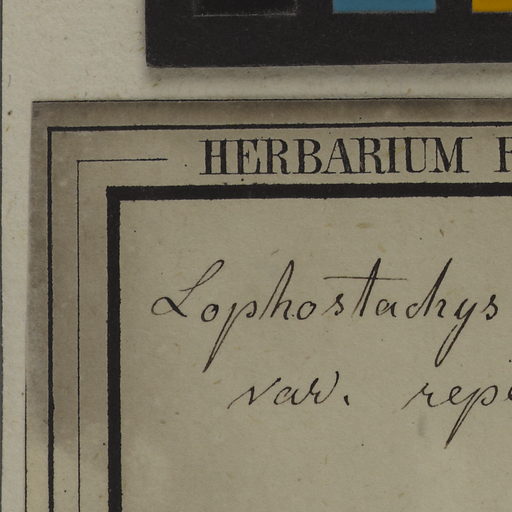 HERBARIUM
Lophostachys
var.